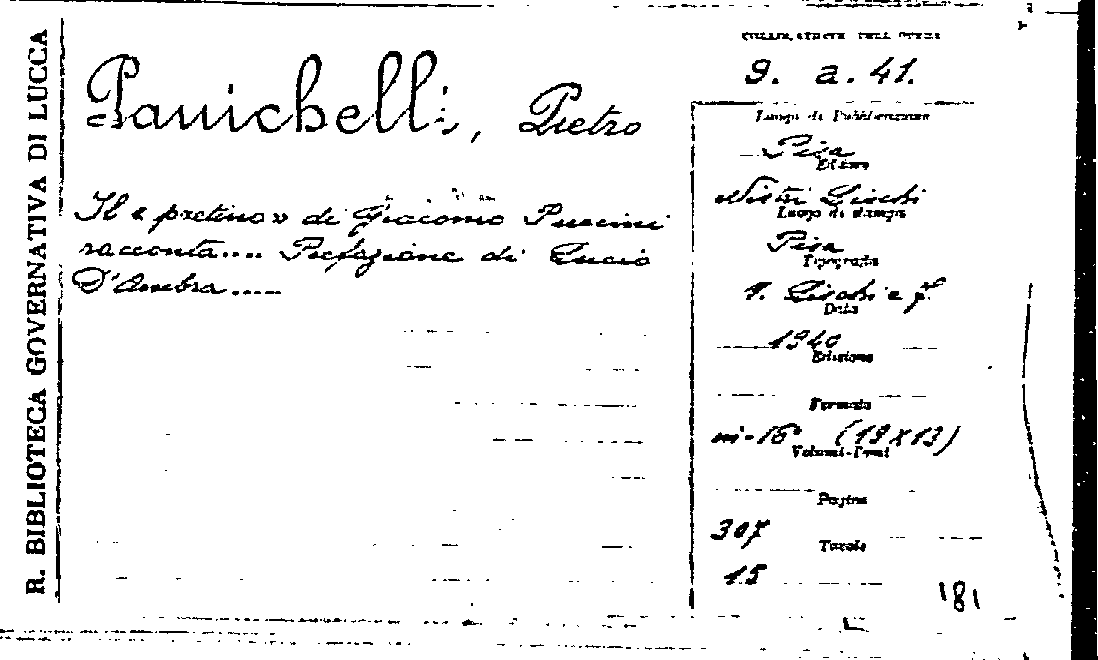 R. BIBLIOTECA GOVERNATIVA DI LUCCA
Panichelli, Pietro
Il « pretino » di Giacomo Puccini
racconta.... Prefazione di Lucio
D'Ambra.....
COLLOCAZIONE DELL'OPERA
9. a. 41.
Luogo di Pubblicazione
Pisa
Editore
Nistri Lischi
Luogo di stampa
Pisa
Tipografia
V. Lischi e f.
Data
1940
Edizione
Formato
in-16° (19X13)
Volumi-Tomi
Pagine
307
Tavole
15
181